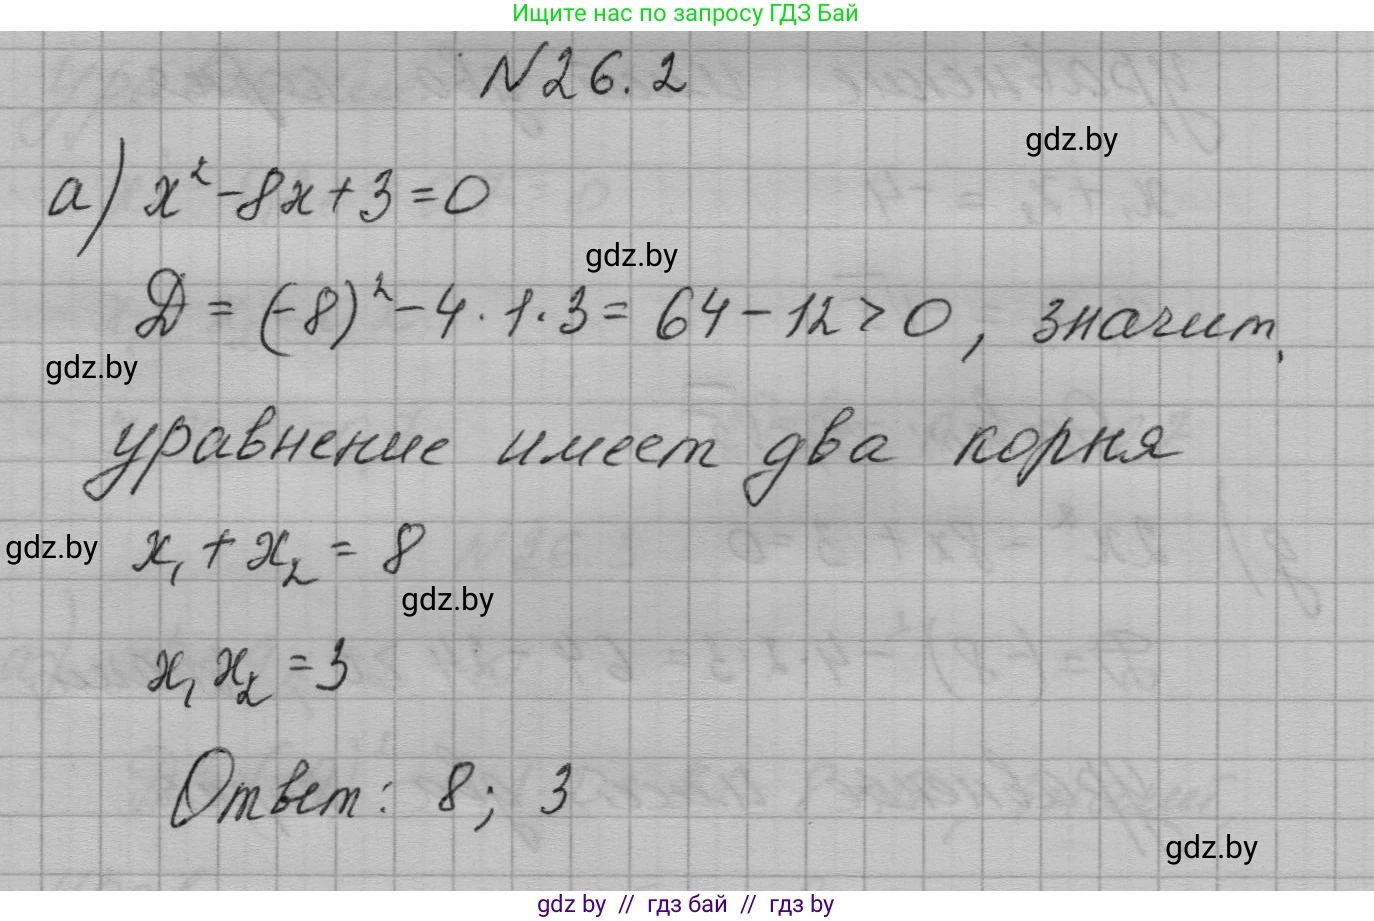 Ищите нас по запросу ГДЗ Бай
№26.2
gdz.by
а) x²-8x+3=0
gdz.by
Д = (-8)²-4·1·3= 64-12>0, значит,
gdz.by
уравнение имеет два корня
gdz.by x₁+x₂=8
gdz.by
x₁x₂=3
Ответ: 8; 3
gdz.by
gdz by // гдз бай // гдз by